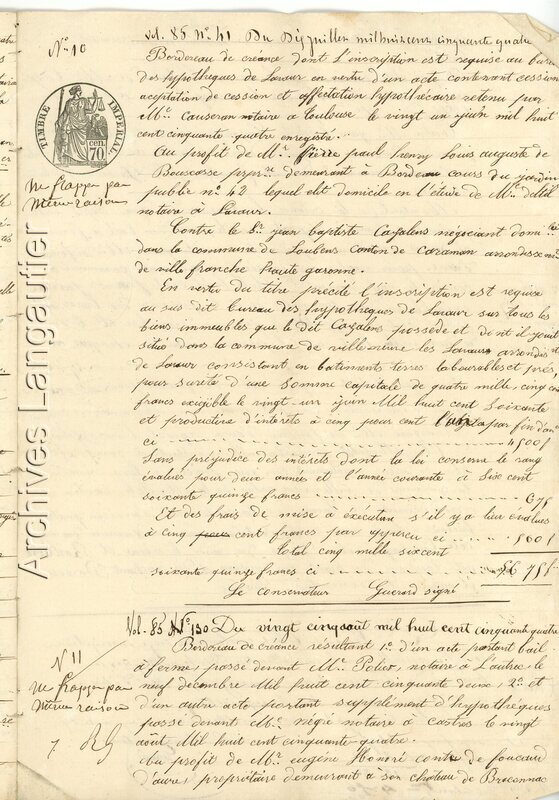 Vol. 85 N° 41 Du Dix juillet mil huit cent cinquante quatre
N° 10
Bordereau de créance dont l'inscription est requise au bureau
des hypothèques de Lavaur en vertu d'un acte contenant cession
aceptation de cession et affectation hypothécaire retenu par
Mtre. Causeran notaire à Toulouse le vingt un juin mil huit
cent cinquante quatre enregistré.
TIMBRE IMPERIAL
70 cen.
Au profit de Mr. Pierre paul henry Louis auguste de
Bouscasse demeurant à Bordeau cours du jardin
public n° 42 lequel elit domicile en l'étude de Mr.
notaire à Lavaur.
ne frappe pas
même raison
Contre le Sr. jean baptiste Cazalens négociant domi
dans la commune de Loubens canton de Caraman arrondissemt
de ville franche haute garonne.
En vertu du titre précité l'inscription est requise
au sus dit bureau des hypothèques de Lavaur sur tous les
biens immeubles que le dit Cazalens possède et dont il jouit
situé dans la commune de villeneuve les Lavaur arrondist
de Lavaur consistant en batiments terres labourables et prés,
pour sureté d'une somme capitale de quatre mille, cinq cent
francs exigible le vingt-un juin Mil huit cent soixante
et productive d'intérets à cinq pour cent par fin d'an
ci 4500f
Sans préjudice des intérets dont la loi conserve le rang
évalués pour deux années et l'année courante à Sixe cent
soixante quinze francs 675
Et des frais de mise à exécution s'il y a lieu évalués
à cinq cent francs par appercu ci 500f
total cinq mille sixcent
soixante quinze francs ci 5675f
Le conservateur Guerard signé
Vol. 85 N° 130 Du vingt cinq aout mil huit cent cinquante quatre
N 11
Bordereau de créance résultant 1° d'un acte portant bail
à ferme passé devant Mr. Polier, notaire à Lautrec le
neuf décembre Mil huit cent cinquante deux, 2° et
d'un autre acte portant supplément d'hypothèques
passé devant Me. négré notaire à castres le vingt
août Mil huit cent cinquante quatre.
ne frappe pas
même raison
Au profit de Mr. eugène Honoré comte de foucaud
d'aure propriétaire demeurant à son chateau de Braconnac
Archives Langautier